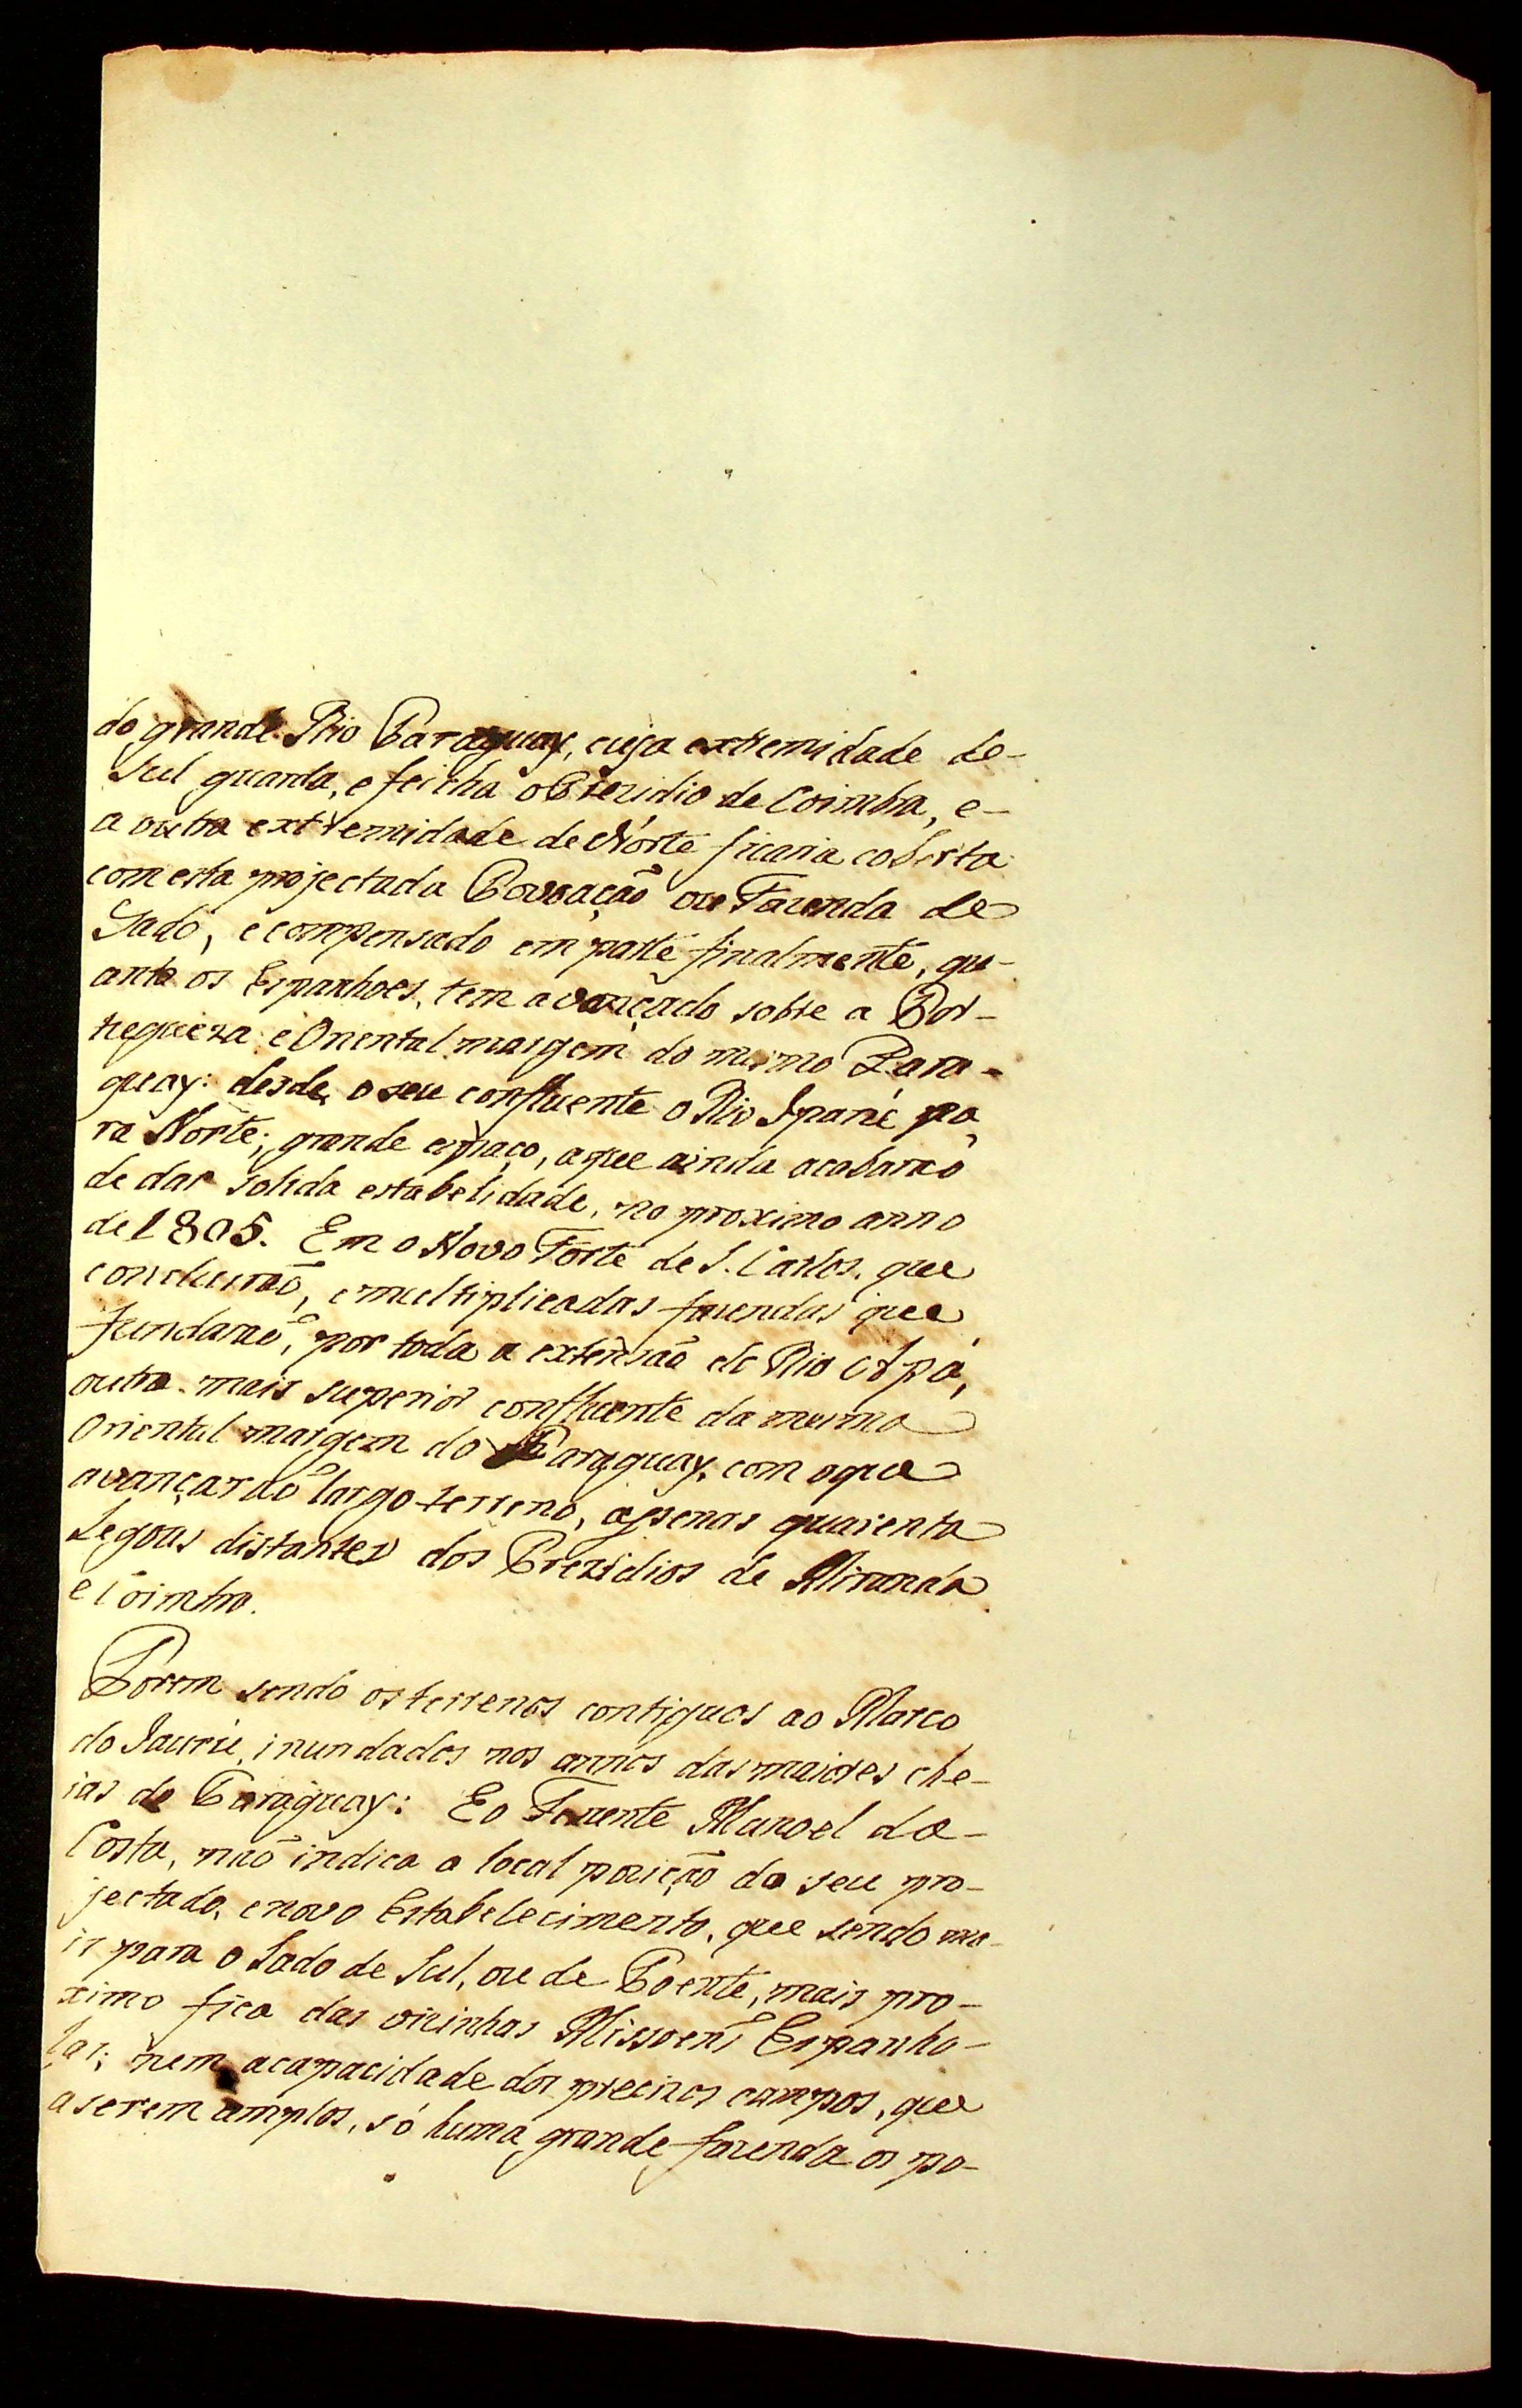 do grande Rio Paraguay, cuja extremidade de-
Sul guarda, e feicha o Prezidio de Coimbra, e-
a outra extremidade de Nórte ficaria coberta
com esta projectada Povoação ou Fazenda de
Gado, e compensado em parte finalmente, qu-
anto os Espanhoes, tem avançado sobre a Por-
tugueza e Oriental margem do mesmo Para-
guay: desde o seu confluente o Rio Ipané pa-
ra Norte; grande espaço, a que ainda acabarão
de dar solida estabelidade, no proximo anno
de 1805. Em o Novo Forte de S. Carlos, que
concluirão, e multiplicadas fazendas que
fundarão, por toda a extensão do Rio Apá,
outro mais superior confluente da mesma
Oriental margem do Paraguay, com o que
avançarão largo terreno, apenas quarenta
Legoas distantes dos Prezidios de Miranda
e Coimbra.
Porem sendo os terrenos contiguos ao Marco
do Jaurú, inundados nos annos das maiores che-
ias do Paraguay: E o Tenente Manoel da-
Costa, não indica a local pozição do seu pro-
jectado, e novo Estabelecimento, que sendo ma-
is para o Lado de Sul, ou de Poente, mais pro-
ximo fica das vizinhas Missoens Espanho-
las; nem a capacidade dos precizos campos, que
a serem amplos, só huma grande fazenda os po-